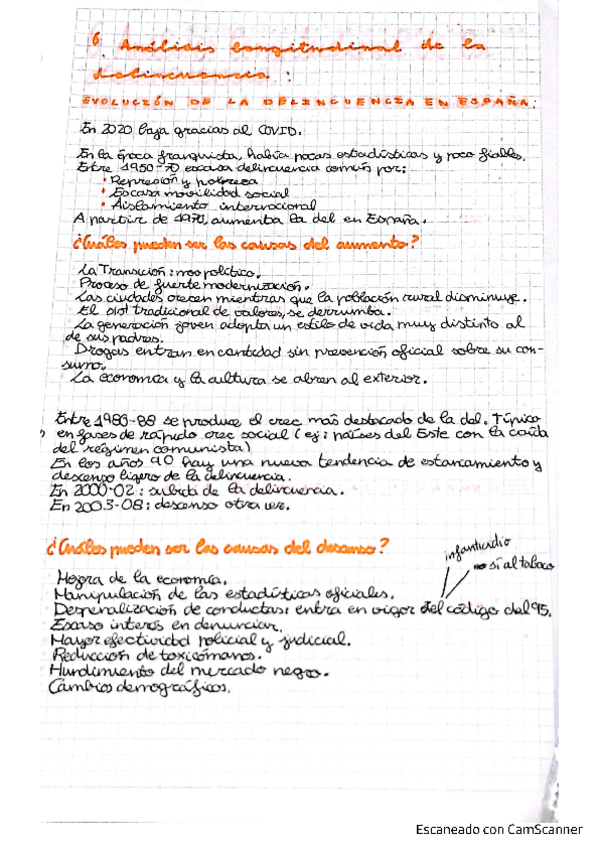 6. Análisis longitudinal de la
delincuencia:
EVOLUCIÓN DE LA DELINCUENCIA EN ESPAÑA:
En 2020 baja gracias al COVID.
En la época franquista, había pocas estadísticas y poco fiables.
Entre 1950-70 escasa delincuencia común por:
• Represión y pobreza
• Escasa movilidad social
• Aislamiento internacional
A partir de 1970, aumenta la del en España.
¿Cuáles pueden ser las causas del aumento?
La Transición: político.
Proceso de fuerte modernización.
Las ciudades crecen mientras que la población rural disminuye.
El sist tradicional de valores, se derrumba.
La generación joven adopta un estilo de vida muy distinto al
de sus padres.
Drogas entran en cantidad sin prevención oficial sobre su con-
sumo.
La economía y la cultura se abren al exterior.
Entre 1983-88 se produce el crec más destacado de la del. Típico
en fases de rápido crec social (ej: países del Este con la caída
del régimen comunista)
En los años 90 hay una nueva tendencia de estancamiento y
descenso ligero de la delincuencia.
En 2000-02: subida de la delincuencia.
En 2003-08: descenso otra vez.
¿Cuáles pueden ser las causas del descenso?
infanticidio
no sí al tabaco
Mejora de la economía.
Manipulación de las estadísticas oficiales.
Despenalización de conductas: entra en vigor del código del 95.
Escaso interés en denunciar.
Mayor efectividad policial y judicial.
Reducción de toxicómanos.
Hundimiento del mercado negro.
Cambios demográficos.
Escaneado con CamScanner